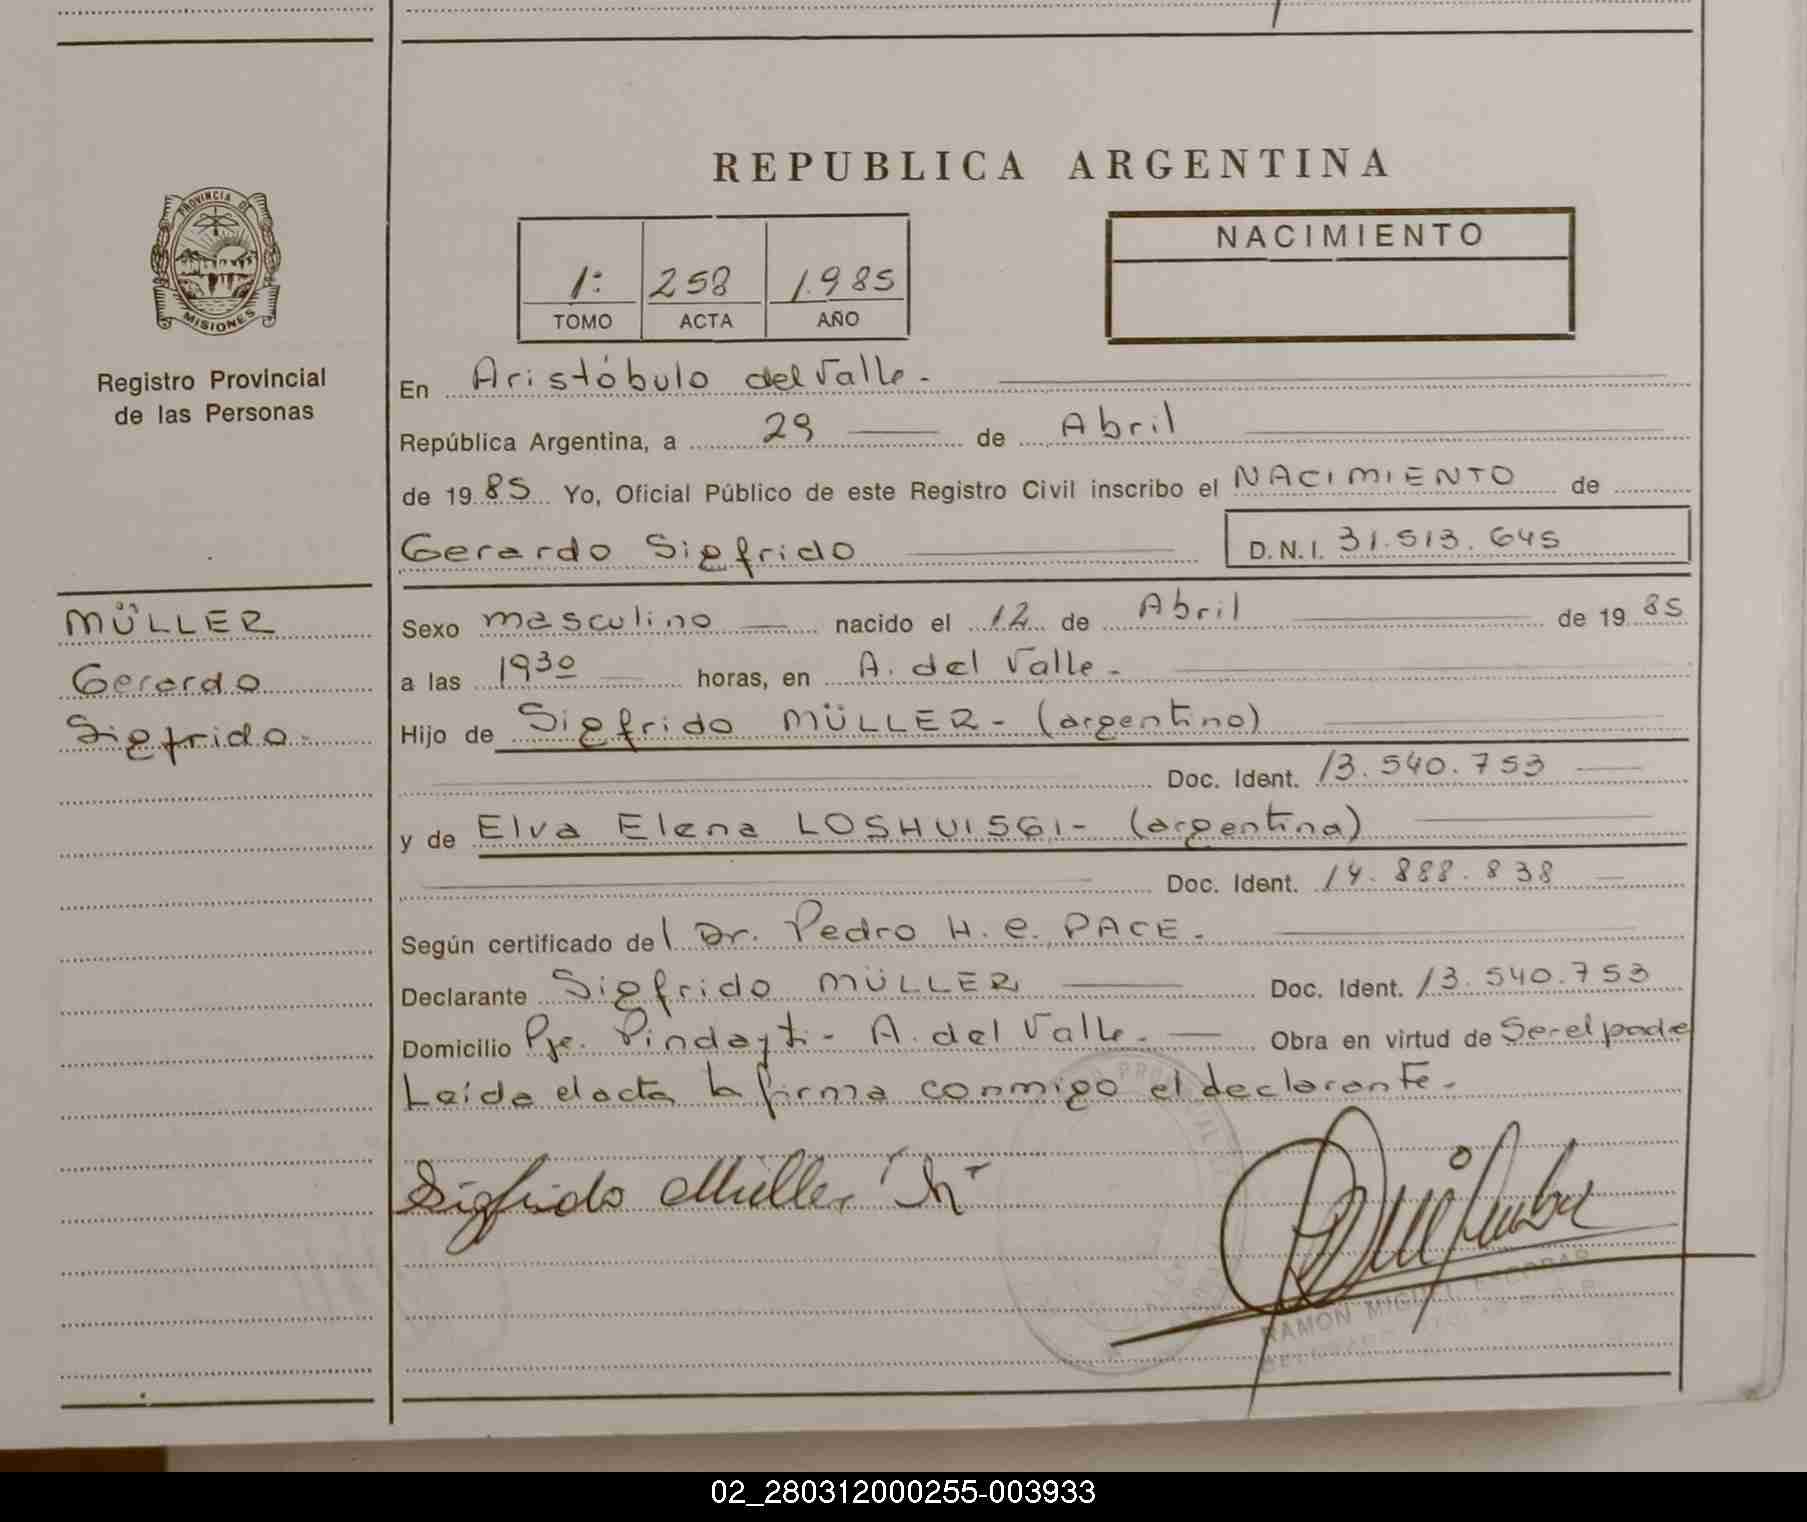 REPUBLICA ARGENTINA
PROVINCIA DE
MISIONES
Registro Provincial
de las Personas
NACIMIENTO
1: 258 1.985
TOMO ACTA AÑO
En Aristóbulo del Valle.-
República Argentina, a 29 de Abril
de 19 85 Yo, Oficial Público de este Registro Civil inscribo el NACIMIENTO de
Gerardo Sigfrido D.N.I. 31.513.645
MÜLLER
Gerardo
Sigfrido.-
Sexo masculino nacido el 12 de Abril de 19 85
a las 19 30 horas, en A. del Valle.-
Hijo de Sigfrido MÜLLER- (argentino)
Doc. Ident. 13.540.753
y de Elva Elena LOSHUISGI- (argentina)
Doc. Ident. 14.888.838
Según certificado del Dr. Pedro H. C. PACE.-
Declarante Sigfrido MÜLLER Doc. Ident. 13.540.753
Domicilio Pje. Pindayti- A. del Valle.- Obra en virtud de Ser el padre
Leída el acta la firma conmigo el declarante.-
Sigfrido Müller "h"
RAMON MIGUEL ESCOBAR
02_280312000255-003933